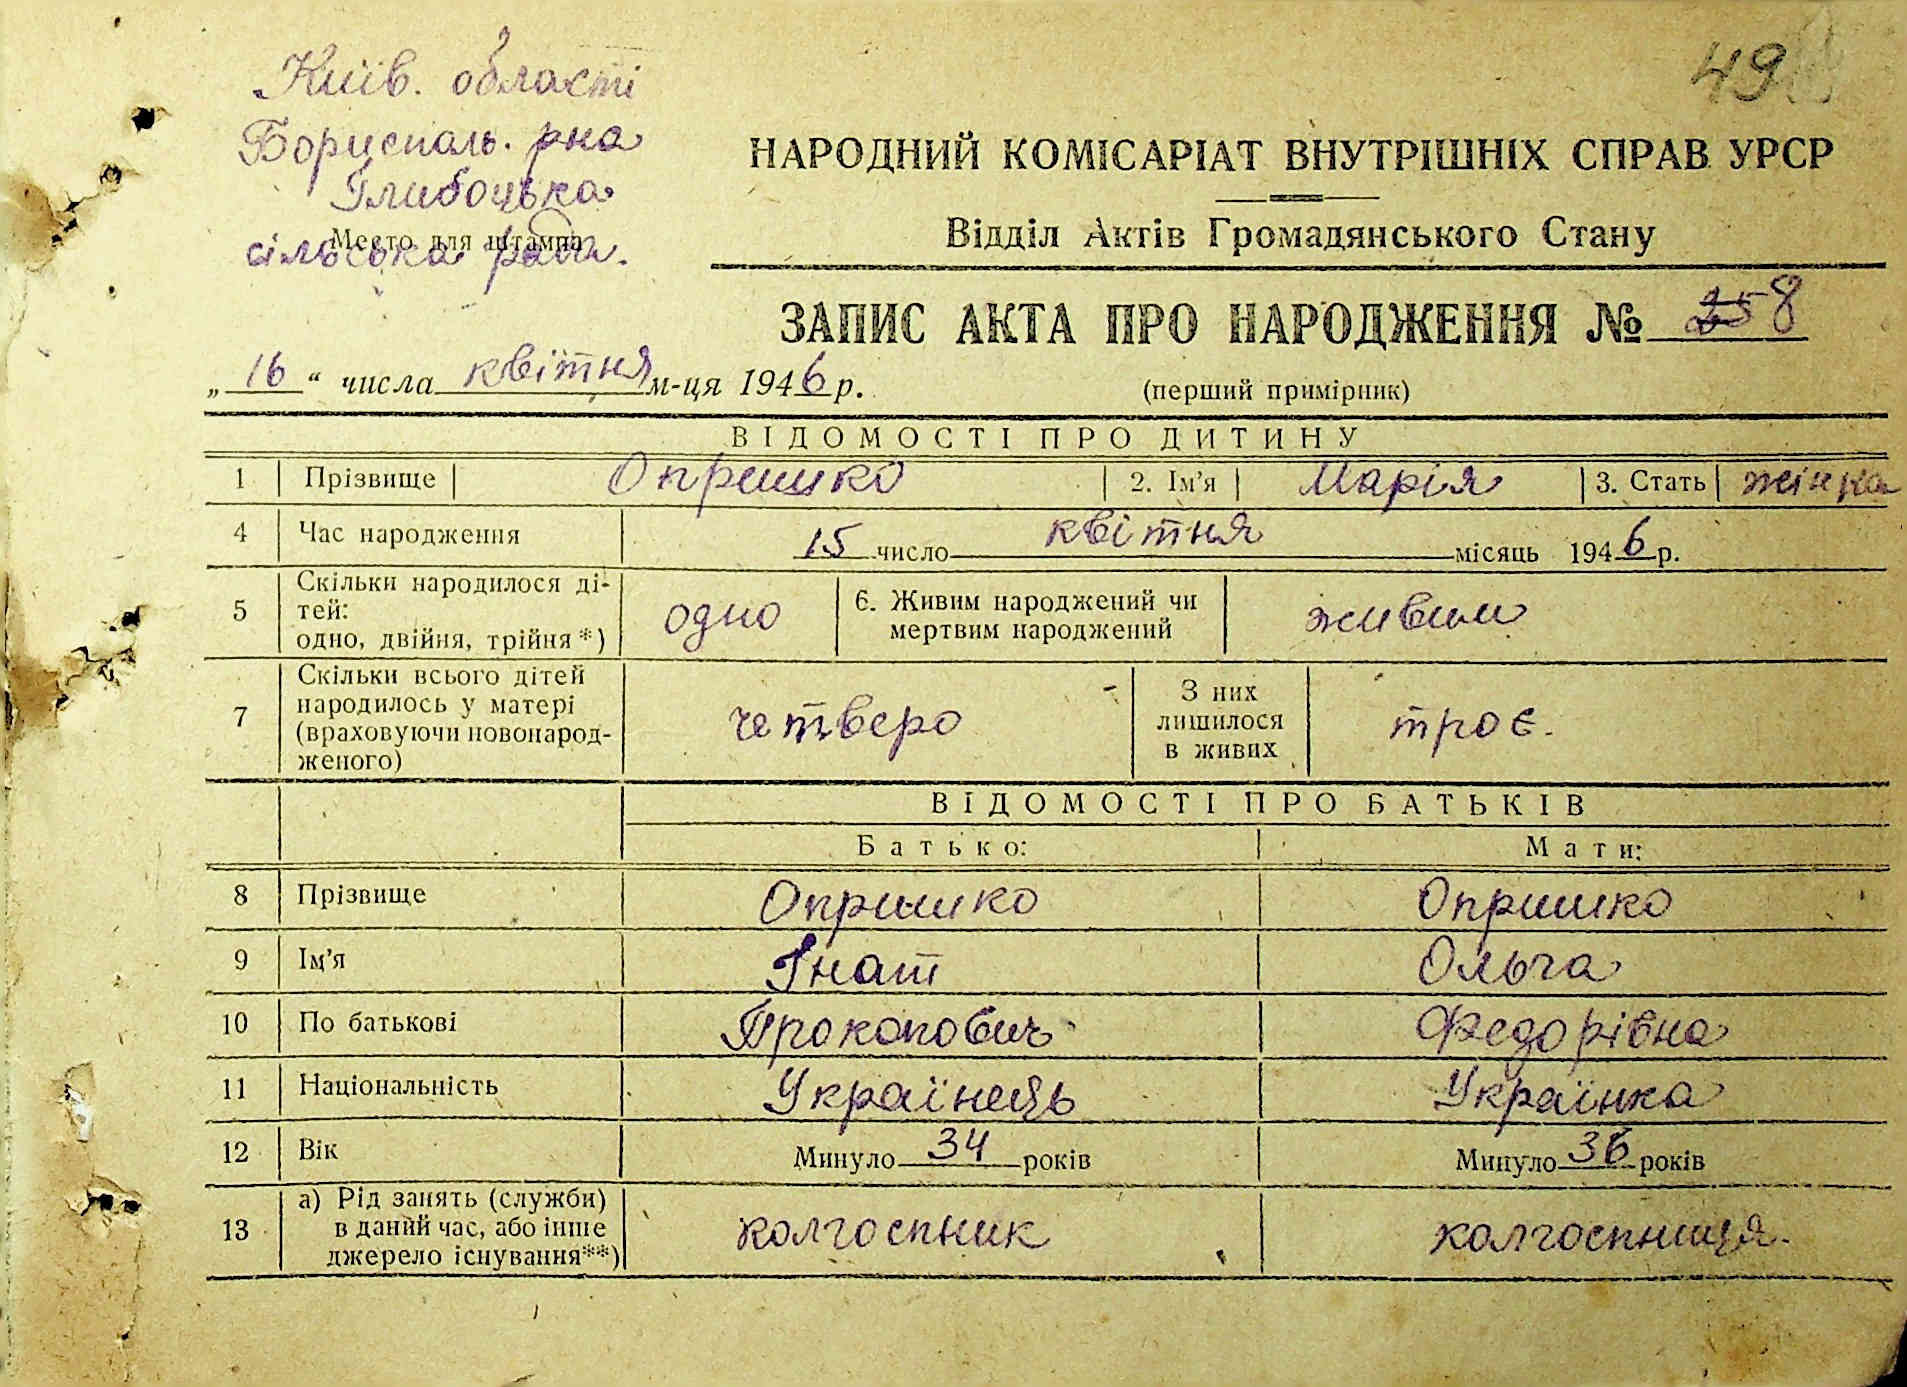 49
Київ. області
Бориспаль. рна
Глибоцька
Место для штампа
сільська рада.
НАРОДНИЙ КОМІСАРІАТ ВНУТРІШНІХ СПРАВ УРСР
Відділ Актів Громадянського Стану
ЗАПИС АКТА ПРО НАРОДЖЕННЯ № 8
„ 16 “ числа квітня м-ця 1946 р.
(перший примірник)
ВІДОМОСТІ ПРО ДИТИНУ
1 Прізвище Опришко 2. Ім'я Марія 3. Стать жінка
4 Час народження 15 число квітня місяць 1946 р.
5 Скільки народилося ді-
тей:
одно, двійня, трійня*) одно 6. Живим народжений чи
мертвим народжений живим
7 Скільки всього дітей
народилось у матері
(враховуючи новонарод-
женого) четверо З них
лишилося
в живих троє.
ВІДОМОСТІ ПРО БАТЬКІВ
Батько: Мати:
8 Прізвище Опришко Опришко
9 Ім'я Гнат Ольга
10 По батькові Прокопович Федорівна
11 Національність Українець Українка
12 Вік Минуло 34 років Минуло 36 років
13 а) Рід занять (служби)
в даний час, або інше
джерело існування**) колгоспник колгоспниця.